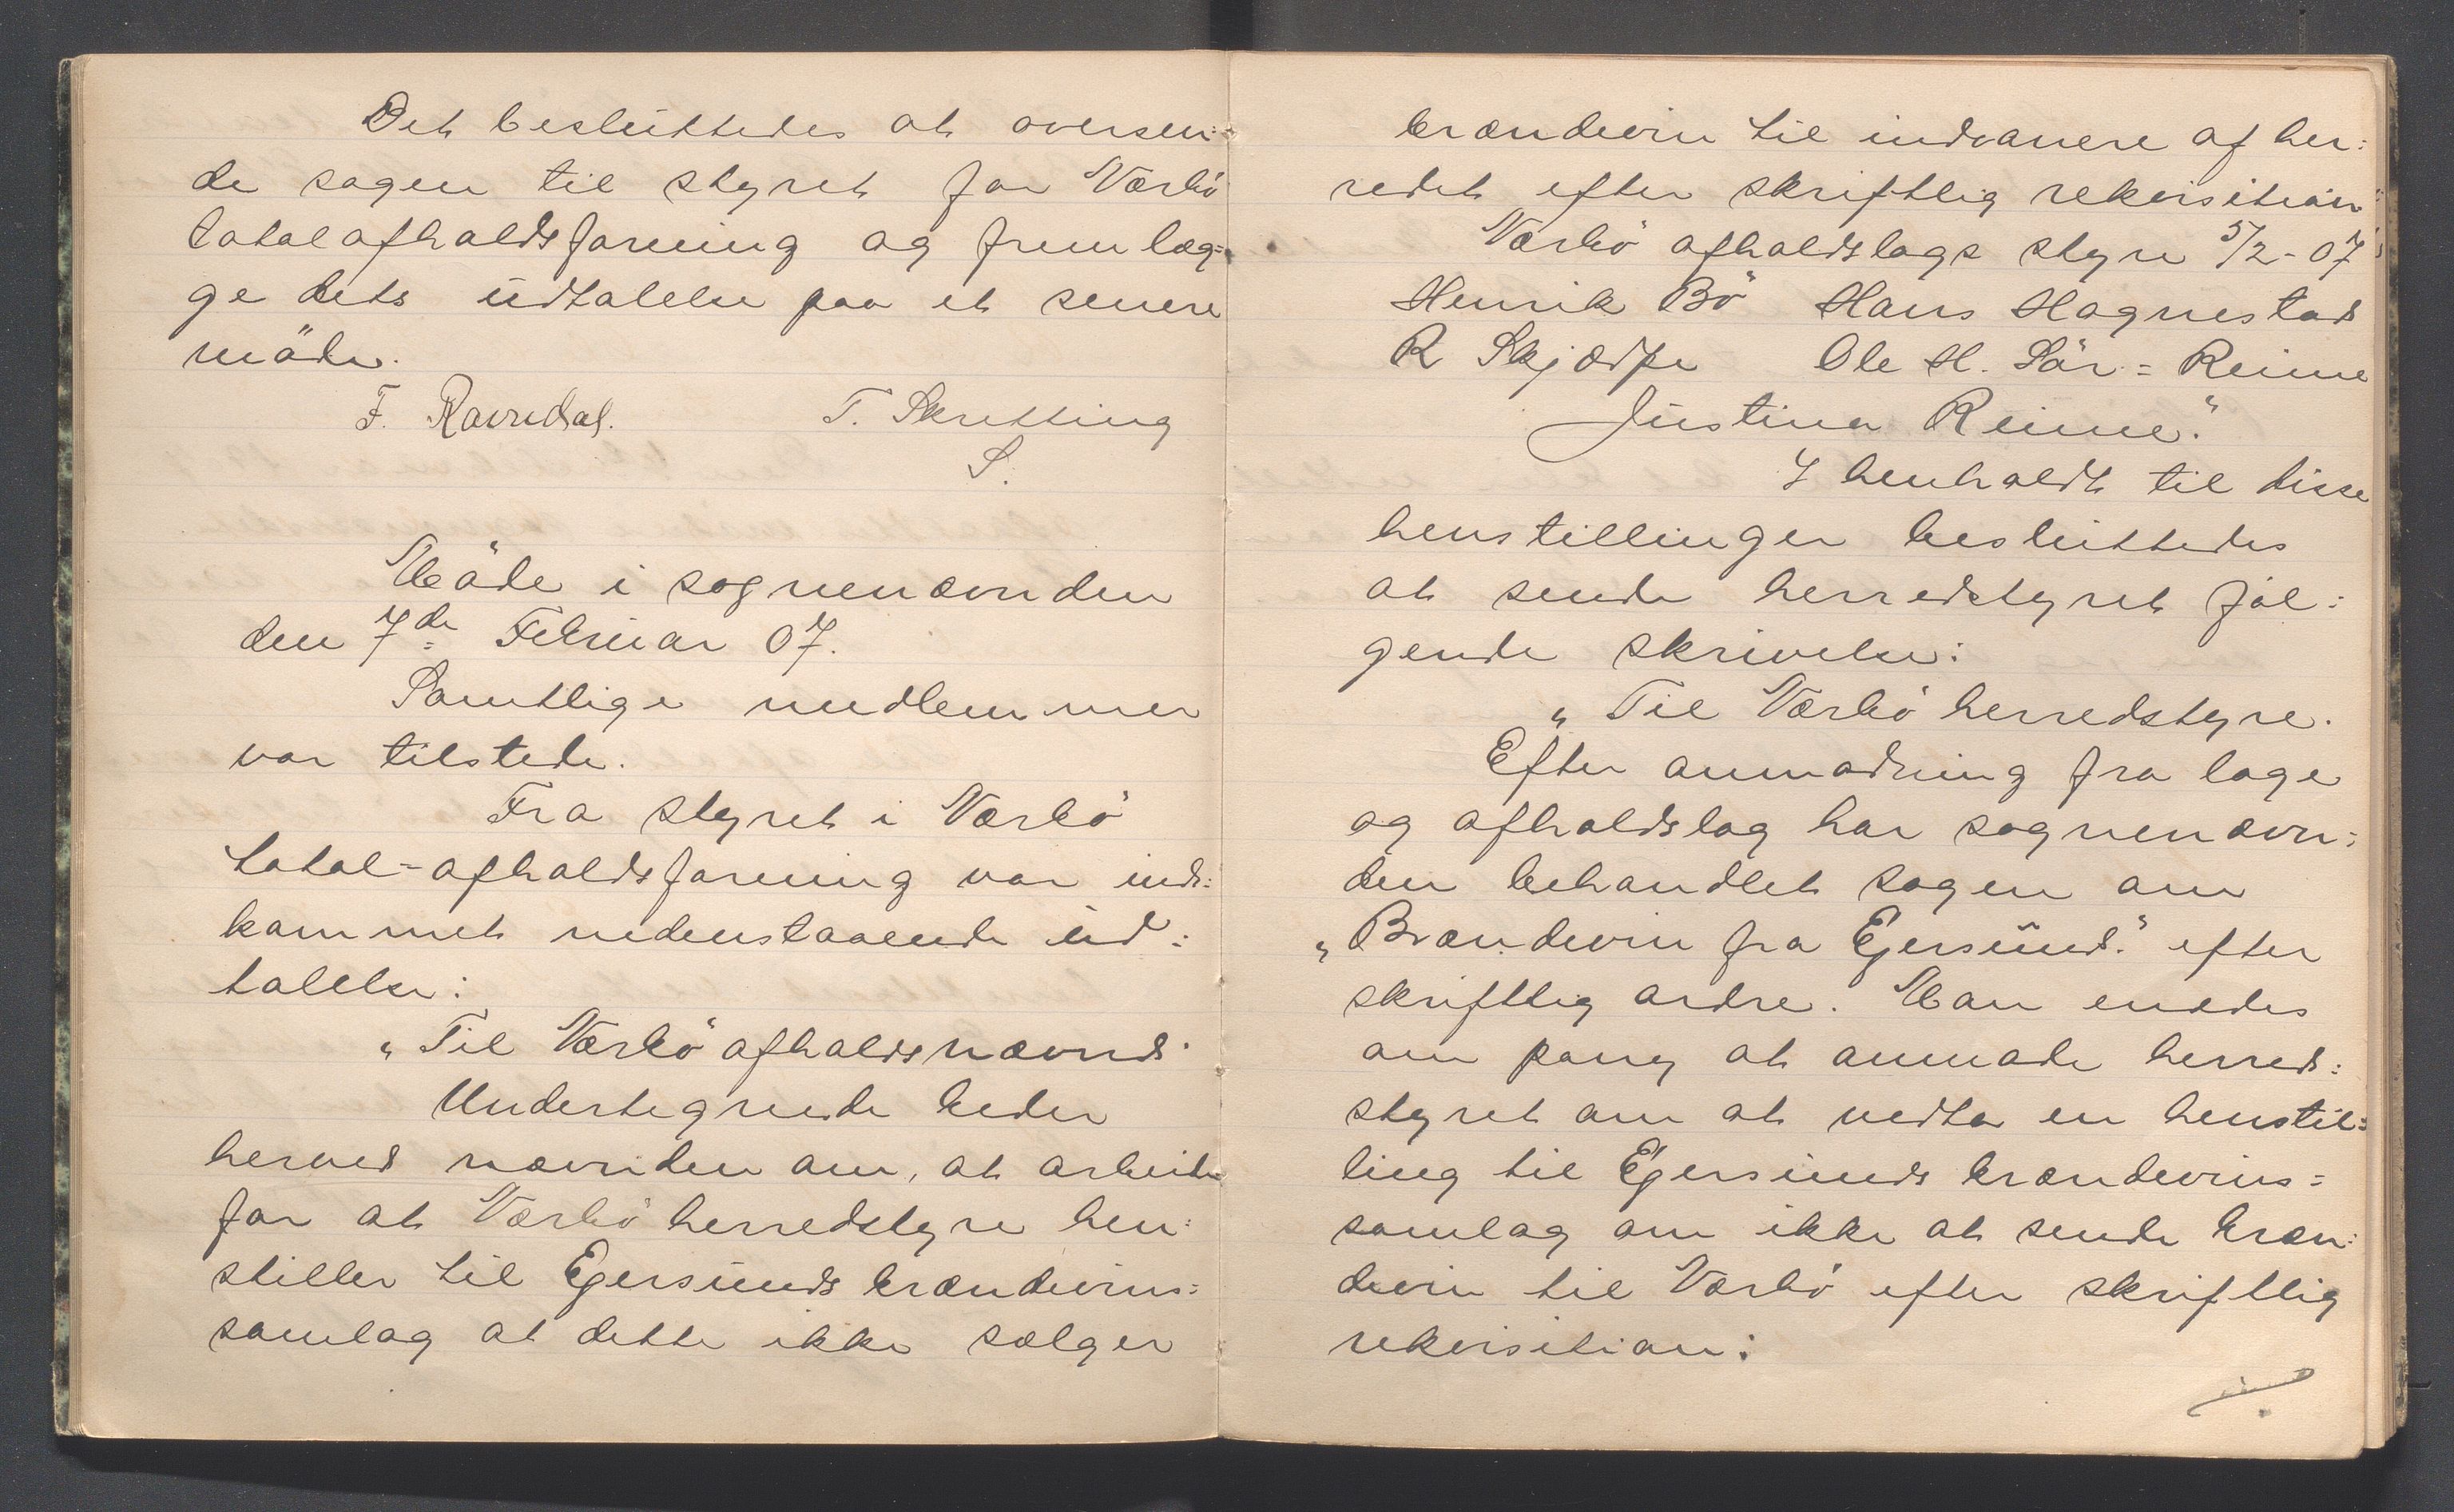 Det besluttedes at oversen=
de sagen til styret for Varhö
totalafholdsforening og fremlæg=
ge dets udtalelse paa et senere
möde.
F. Ravndal. T. Skretting
S.
Möde i sognenævnden
den 7de Februar 07.
Samtlige medlemmer
var tilstede.
Fra styret i Varhö
total=afholdsforening var ind=
kommet nedenstaaende ud=
talelse:
"Til Varhö afholdsnævnd.
Undertegnede beder
herved nævnden om, at arbeide
for at Varhö herredstyre hen=
stiller til Egersunds brændevins=
samlag at dette ikke sælger
brændevin til indvanere af her=
redet efter skriftlig rekvisition
Varhö afholdslags styre 5/2-07
Henrik Bö Hans Hognestad
R Skjærpe Ole H. Sör=Reime
Justina Reime."
I henholdt til disse
henstillinger besluttedes
at sende herredstyret föl=
gende skrivelse:
"Til Varhö herredstyre.
Efter anmodning fra loge
og afholdslag har sognenævn=
den behandlet sagen om
"Brændevin fra Egersund." efter
skriftlig ordre. Man enedes
om pany at anmode herred=
styret om at vedta en henstil=
ling til Egersunds brændevins=
samlag om ikke at sende bræn=
devin til Varhö efter skriftlig
rekvisition: